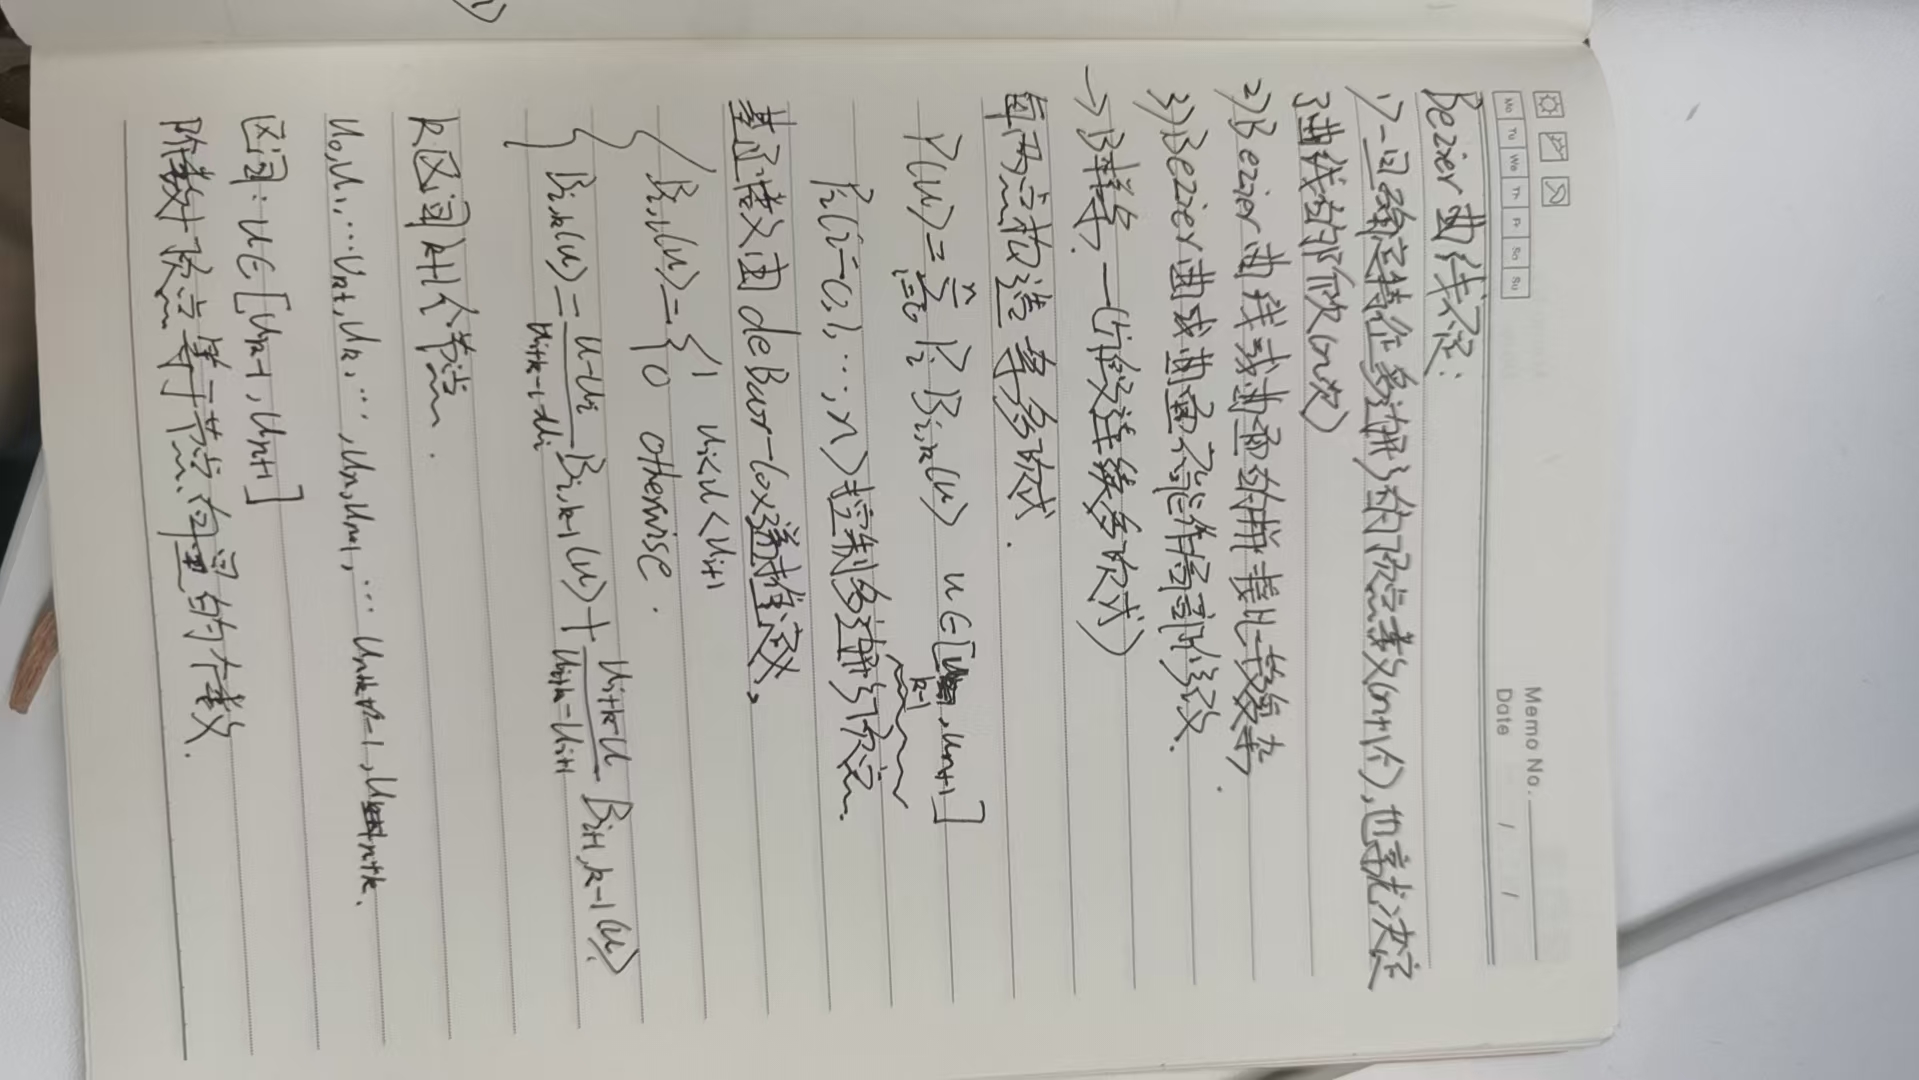 Mo Tu We Th Fr Sa Su
Memo No.
Date / /
Bezier曲线不足:
1)一旦确定特征多边形的顶点数(n+1个),也就决定
了曲线的阶次(n次)
2)Bezier曲线或曲面的拼接比较复杂.
3)Bezier曲或曲面不能作局部修改.
→B样条—(分段连续多项式)
每两点构造 多项式.
P(u)=∑ⁿᵢ₌₀ Pᵢ Bᵢ,ₖ(u) u∈[uₖ₋₁,uₙ₊₁]
Pᵢ(i=0,1,…,n)控制多边形顶点.
基函数由deBoor-Cox递推定义,
Bᵢ,₁(u)={1 uᵢ<u<uᵢ₊₁
0 otherwise.
Bᵢ,ₖ(u)=(u-uᵢ)/(uᵢ₊ₖ₋₁-uᵢ) Bᵢ,ₖ₋₁(u)+(uᵢ₊ₖ-u)/(uᵢ₊ₖ-uᵢ₊₁) Bᵢ₊₁,ₖ₋₁(u).
k区间k+1个节点.
u₀,u₁,…uₖ₋₁,uₖ,…,uₙ,uₙ₊₁,… uₙ₊ₖ₋₁,uₙ₊ₖ.
区间:u∈[uₖ₋₁,uₙ₊₁]
阶数+顶点等于节点向量的个数.